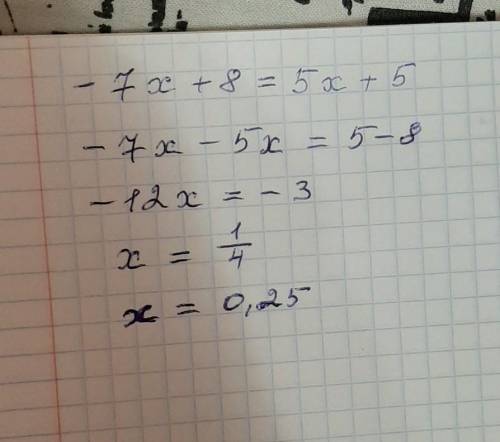 - 7x + 8 = 5x + 5
- 7x - 5x = 5 - 8
- 12x = - 3
x = 1/4
x = 0,25